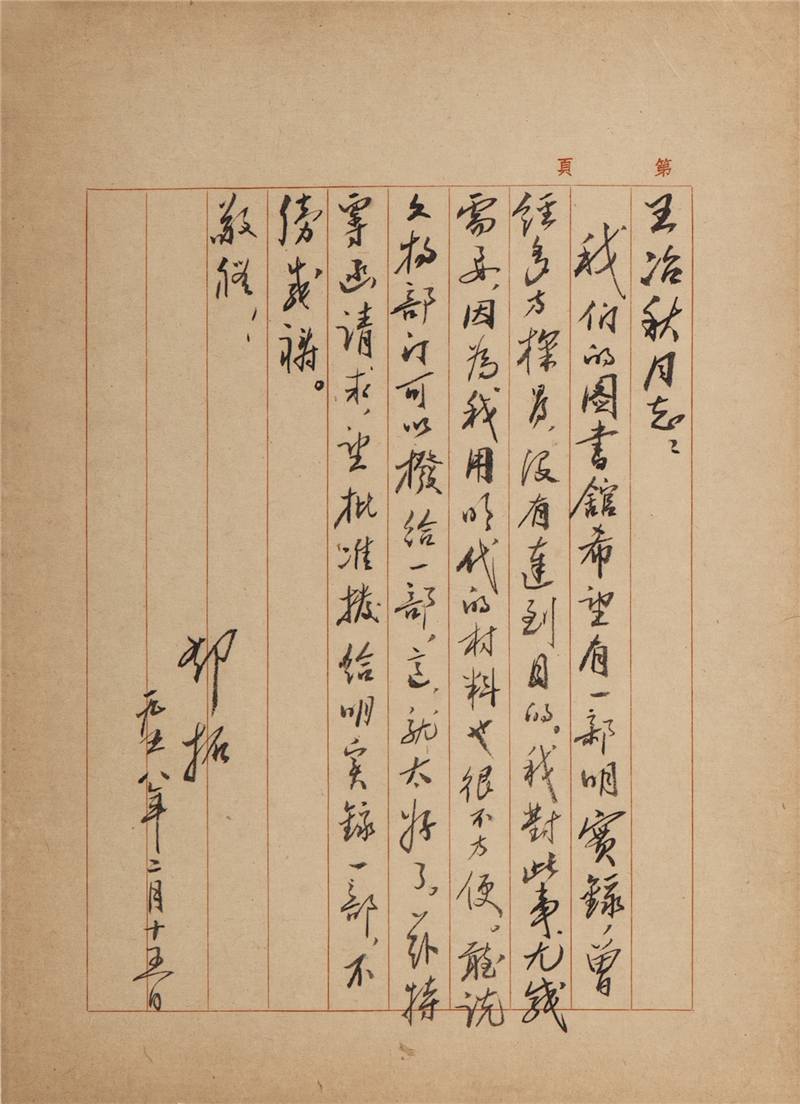 第　頁
王冶秋同志：
我们的图書館希望有一部明实録，曾
經多方探尋，没有達到目的。我對此事尤感
需要，因為我用明代的材料也很不方便。聽说
文物部门可以撥给一部，这就太好了。兹特
專函請求，望批准撥给明实録一部，不
勝感禱。
敬礼！
鄧拓
一九五八年二月十五日